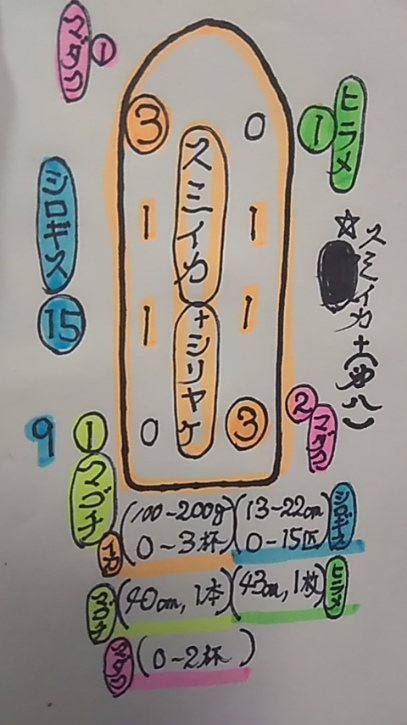 マダコ ①
③ 0
① ヒラメ
シロギス
⑮
スミイカ+シリヤケ
1 1
1 1
0 ③
☆スミイカ+(
② マダコ
9
① マゴチ
イカ (100~200g 0~3杯)
(13~22cm 0~15匹) シロギス
マゴチ (40cm, 1本)
(43cm, 1枚) ヒラメ
マダコ (0~2杯)